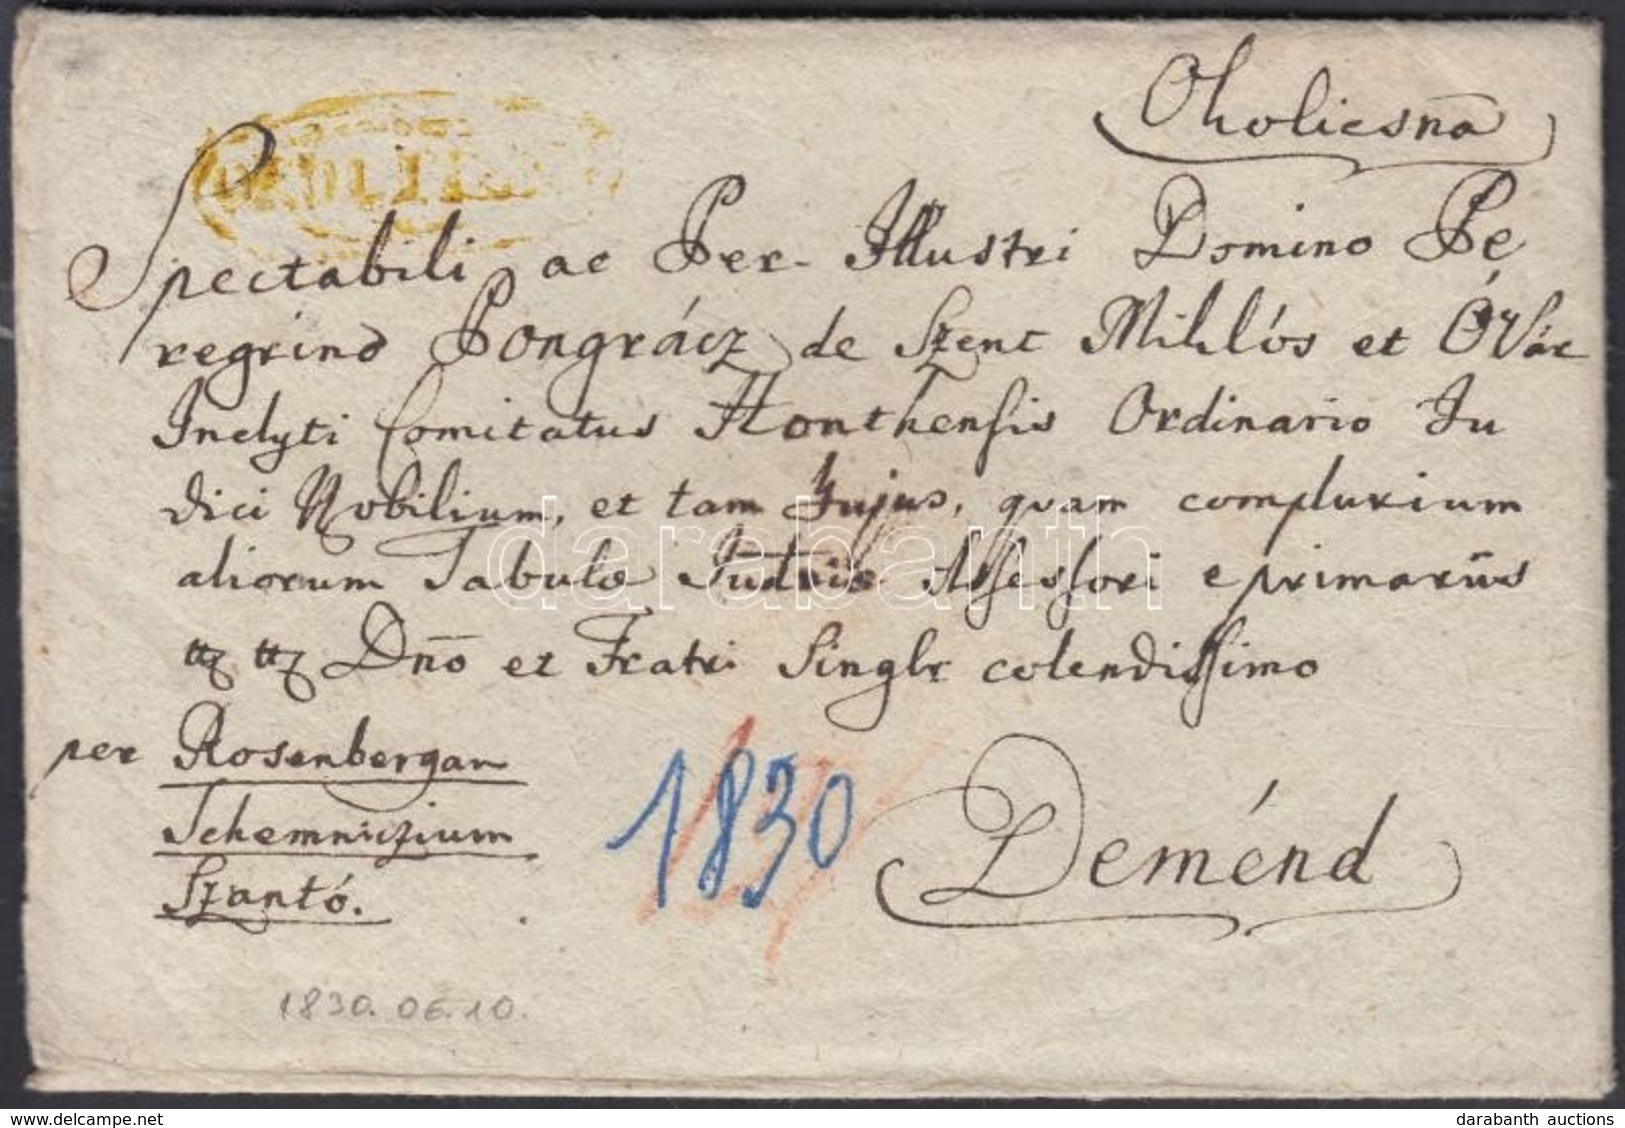 Okolicsnā
Spectabili ac Per Illustri Domino Pe
regrino Pongrácz de Szent Miklós et Óvár
Inclyti Comitatus Honthensis Ordinario Ju
dici Nobilium, et tam hujus, quam complurium
aliorum Tabulæ Judriæ Assessori e primariis
tt tt Dno et Fratri Singlr colendissimo
per Rosenbergam
Schemniczium
Szantó.
1830
Deménd
1830. 06. 10.
darabanth
darabanth auctions